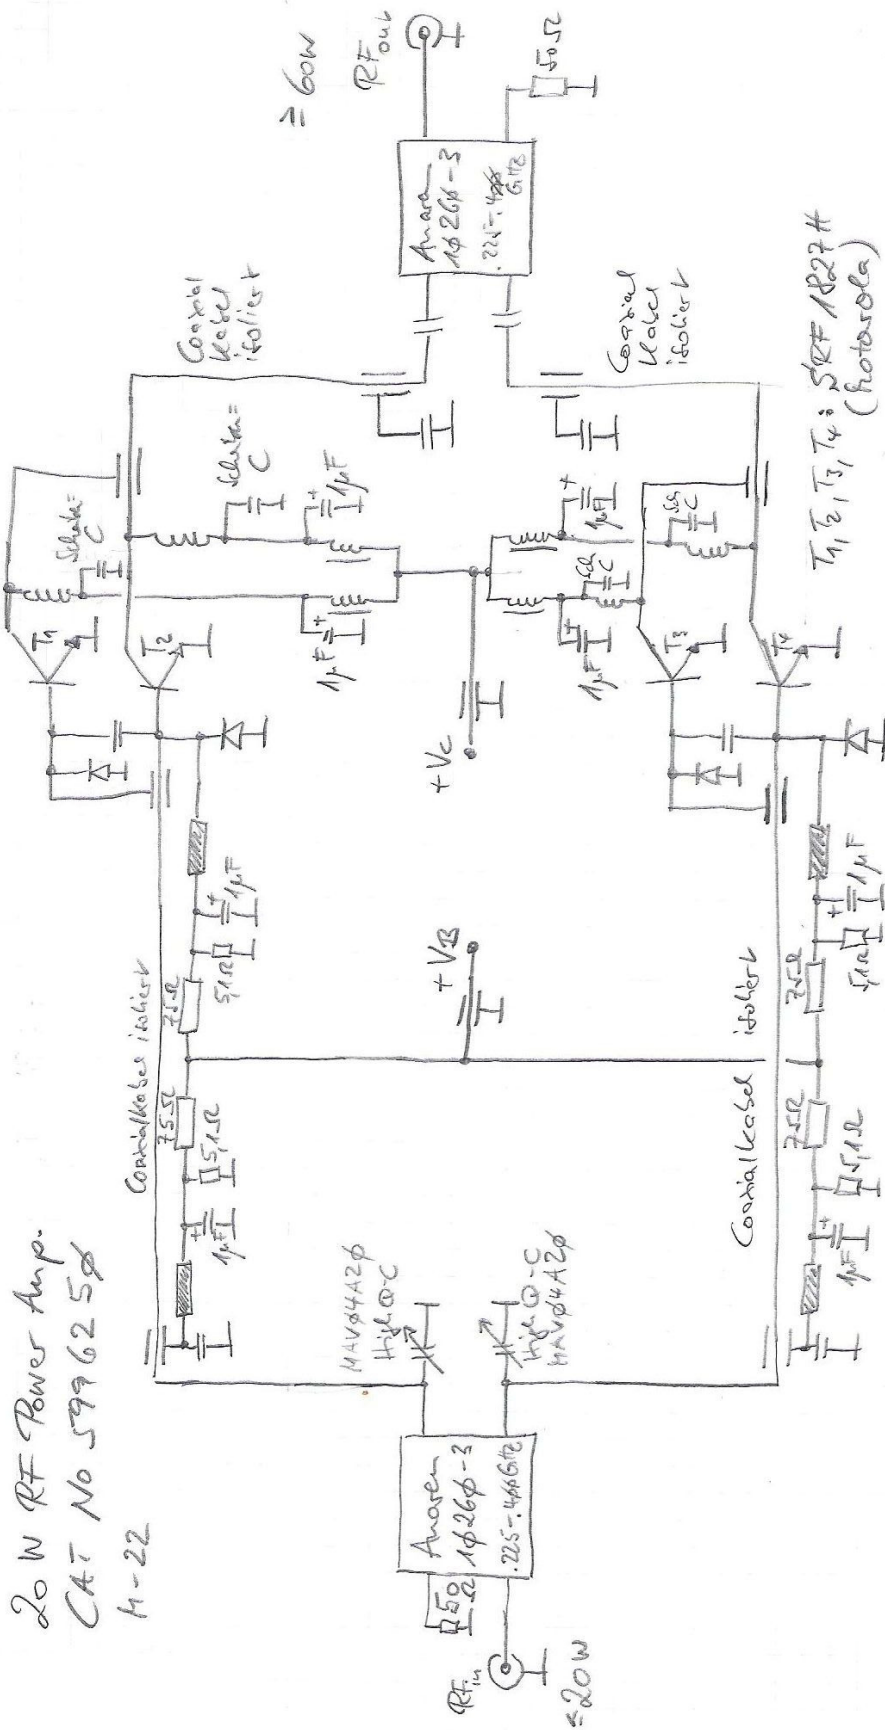 20 W RF Power Amp.
CAT No 599625Ø
M-22
RF in
≤20W
50
Ω
Anaren
1Ø26Ø-3
.225-.4ØØGHz
MAVØ4A2Ø
High Q-C
High Q-C
MAVØ4A2Ø
Coaxialkabel isoliert
75Ω
75Ω
5,1Ω
5,1Ω
1µF
1µF
+VB
Coaxialkabel isoliert
75Ω
75Ω
5,1Ω
5,1Ω
1µF
1µF
T1
T2
T3
T4
+VC
1µF
1µF
1µF
1µF
C
C
Sch
C
Sch
C
Coaxial
Kabel
isoliert
Coaxial
Kabel
isoliert
Anaren
1Ø26Ø-3
.225-.4ØØ
GHz
≥ 60W
RF out
50Ω
T1, T2, T3, T4: SRF 1827H
(Motorola)